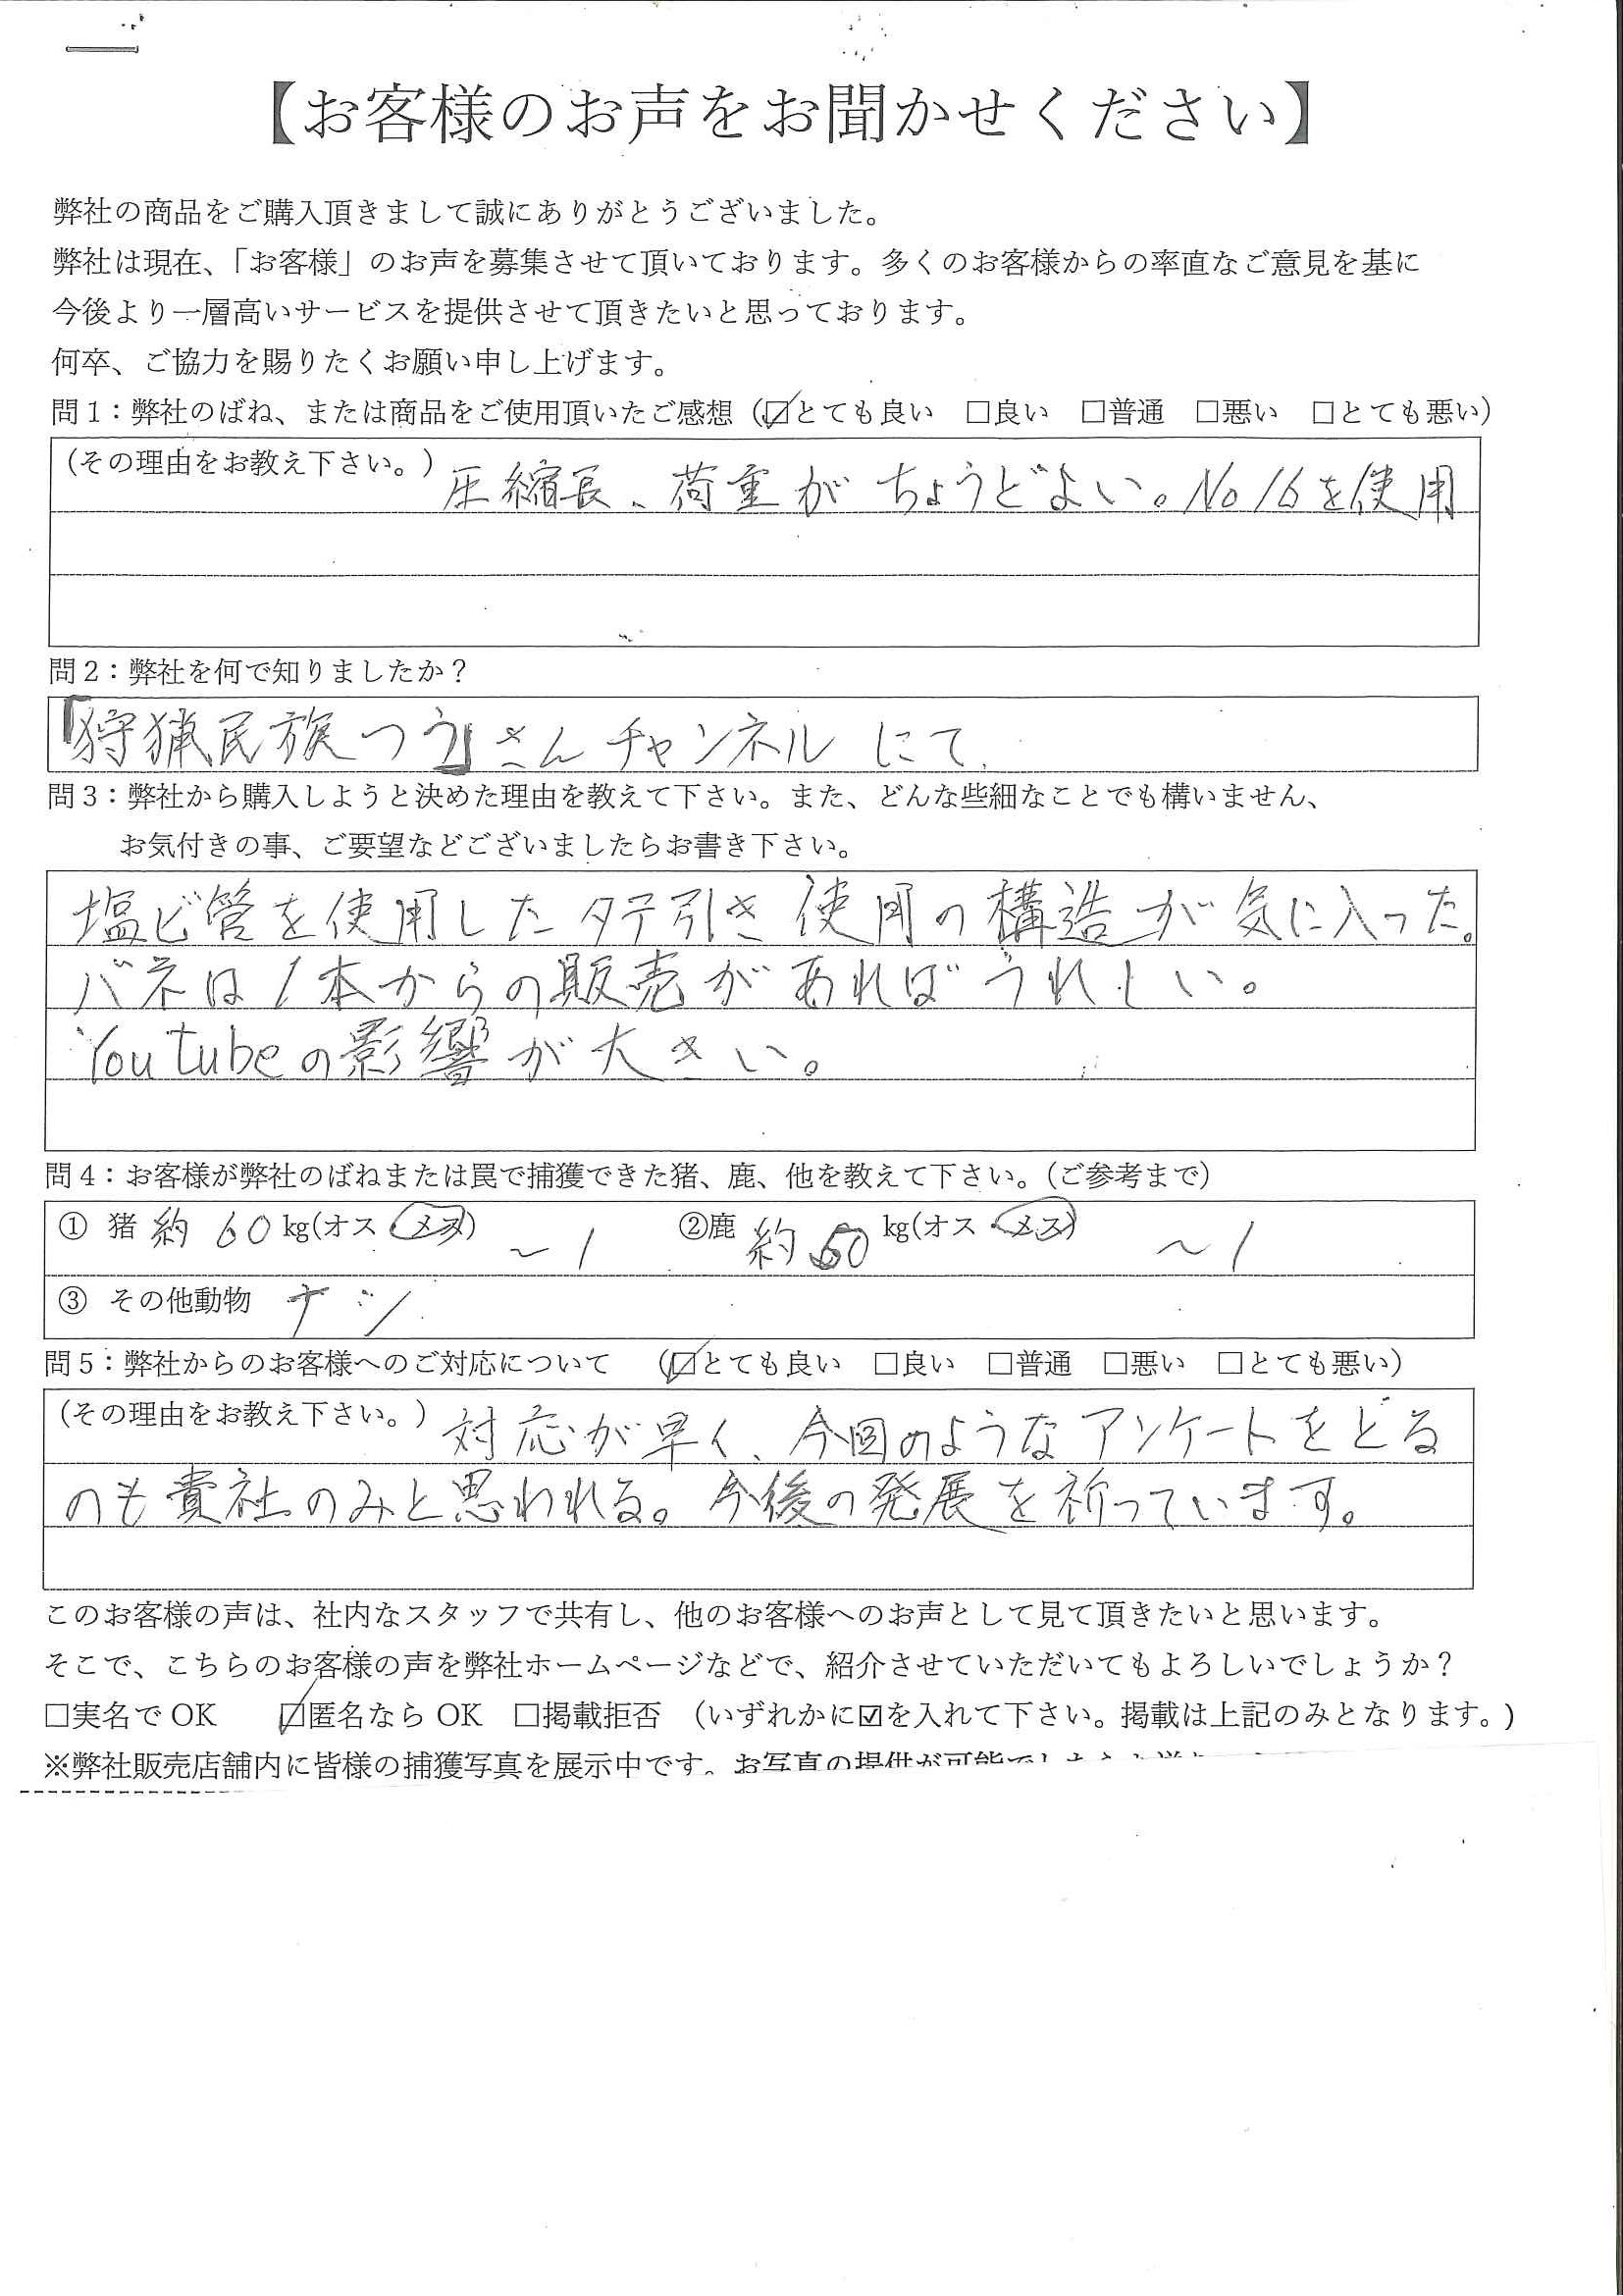 【お客様のお声をお聞かせください】
弊社の商品をご購入頂きまして誠にありがとうございました。
弊社は現在、「お客様」のお声を募集させて頂いております。多くのお客様からの率直なご意見を基に
今後より一層高いサービスを提供させて頂きたいと思っております。
何卒、ご協力を賜りたくお願い申し上げます。
問1：弊社のばね、または商品をご使用頂いたご感想（☑とても良い　□良い　□普通　□悪い　□とても悪い）
（その理由をお教え下さい。）圧縮長、荷重がちょうどよい。No16を使用
問2：弊社を何で知りましたか？
『狩猟民族つう』さんチャンネルにて
問3：弊社から購入しようと決めた理由を教えて下さい。また、どんな些細なことでも構いません、
お気付きの事、ご要望などございましたらお書き下さい。
塩ビ管を使用したタテ引き使用の構造が気に入った。
バネは1本からの販売があればうれしい。
Youtubeの影響が大きい。
問4：お客様が弊社のばねまたは罠で捕獲できた猪、鹿、他を教えて下さい。（ご参考まで）
① 猪 約60kg(オス・メス) ～1　②鹿 約50kg(オス・メス) ～1
③ その他動物 ナシ
問5：弊社からのお客様へのご対応について　（☑とても良い　□良い　□普通　□悪い　□とても悪い）
（その理由をお教え下さい。）対応が早く、今回のようなアンケートをとる
のも貴社のみと思われる。今後の発展を祈っています。
このお客様の声は、社内なスタッフで共有し、他のお客様へのお声として見て頂きたいと思います。
そこで、こちらのお客様の声を弊社ホームページなどで、紹介させていただいてもよろしいでしょうか？
□実名でOK　☑匿名ならOK　□掲載拒否　（いずれかに☑を入れて下さい。掲載は上記のみとなります。）
※弊社販売店舗内に皆様の捕獲写真を展示中です。お写真の提供が可能でしたら